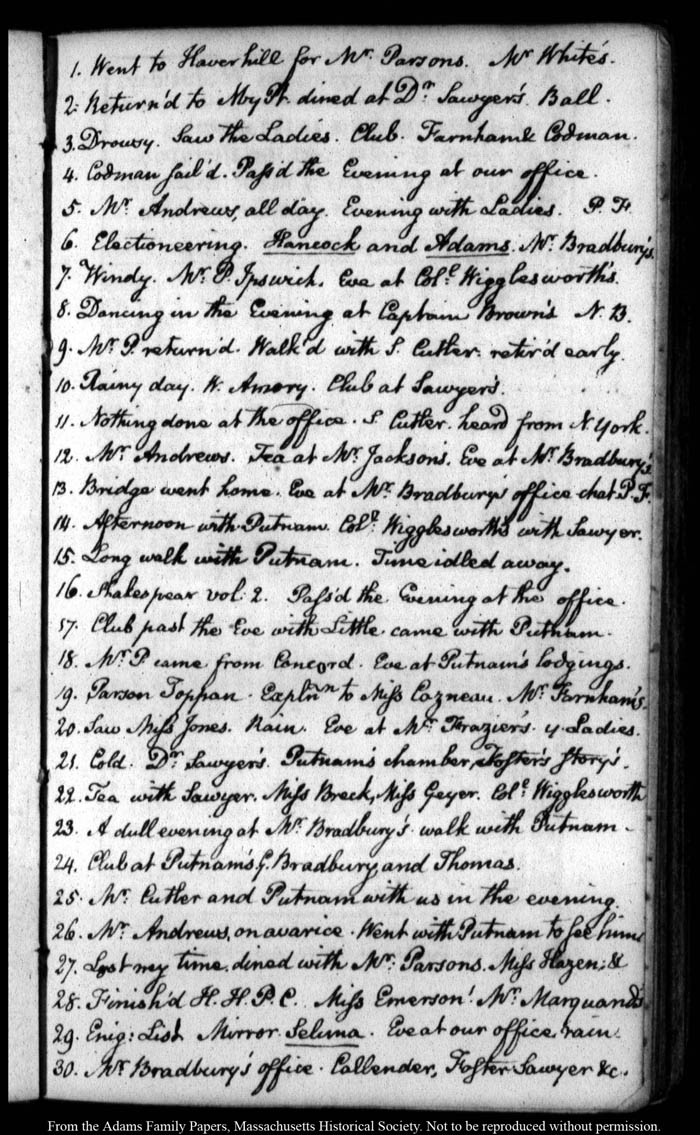 1. Went to Haverhill for Mr. Parsons. Mr White's.
2. Return'd to Nby Pt. dined at Dr. Sawyer's. Ball.
3. Drowsy. Saw the Ladies. Club. Farnham & Codman.
4. Codman sail'd. Pass'd the Evening at our office.
5. Mr. Andrews, all day. Evening with Ladies. P. F.
6. Electioneering. Hancock and Adams. Mr. Bradbury's.
7. Windy. Mr. P. Ipswich. Eve at Colo. Wigglesworth's.
8. Dancing in the Evening at Captain Brown's N. B.
9. Mr. P. return'd. Walk'd with S. Cutler. retir'd early.
10. Rainy day. W. Amory. Club at Sawyer's.
11. Nothing done at the office. S. Cutler. heard from N. York.
12. Mr. Andrews. Tea at Mr. Jackson's. Eve at Mr. Bradbury's.
13. Bridge went home. Eve at Mr. Bradbury's office chat P. F.
14. Afternoon with Putnam. Colo. Wigglesworth's with Sawyer.
15. Long walk with Putnam. Time idled away.
16. Shakespear vol: 2. Pass'd the Evening at the office.
17. Club past the Eve with Little came with Putnam.
18. Mr. P. came from Concord. Eve at Putnam's lodgings.
19. Parson Toppan. Explnn to Miss Cazneau. Mr. Farnham's.
20. Saw Miss Jones. Rain. Eve at Mr. Frazier's. y. Ladies.
21. Cold. Dr. Sawyer's. Putnam's chamber, Foster's story's.
22. Tea with Sawyer. Miss Breck, Miss Geyer. Colo. Wigglesworth
23. A dull evening at Mr. Bradbury's. walk with Putnam.
24. Club at Putnam's, G. Bradbury, and Thomas.
25. Mr. Cutler and Putnam with us in the evening.
26. Mr. Andrews, on avarice. Went with Putnam to see him
27. Lost my time. dined with Mr. Parsons. Miss Hazen; &
28. Finish'd H. H. P. C. Miss Emerson! Mr. Marquand's
29. Enig: List Mirror. Selima. Eve at our office, rain.
30. Mr Bradbury's office. Callender, Foster Sawyer &c.
From the Adams Family Papers, Massachusetts Historical Society. Not to be reproduced without permission.